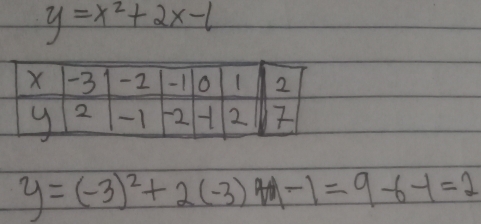 y = x² + 2x - 1
x -3 -2 -1 0 1 2
y 2 -1 -2 -1 2 7
y = (-3)² + 2(-3) - 1 = 9 - 6 - 1 = 2